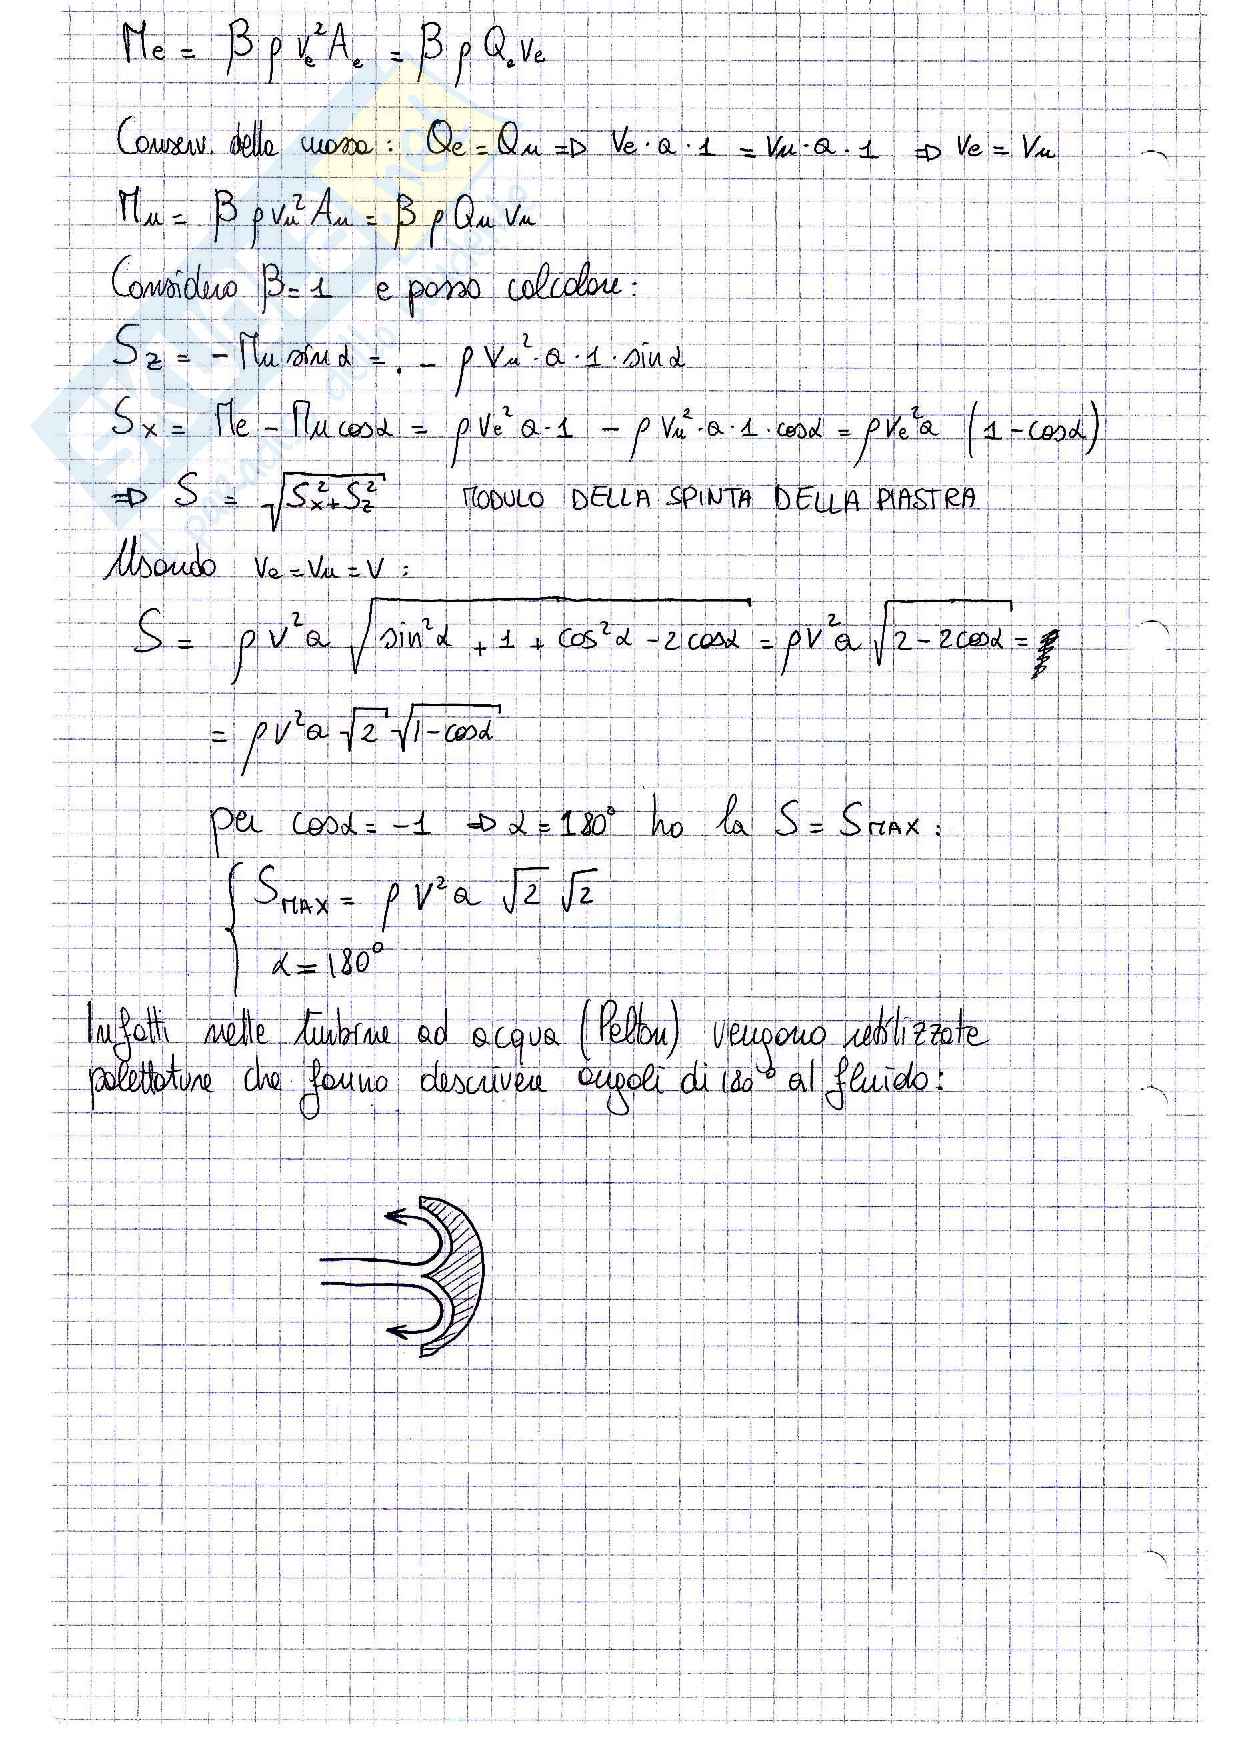 Me = β ρ ve² Ae = β ρ Qe ve
Conserv. della massa: Qe = Qu ⇒ Ve · a · 1 = Vu · a · 1 ⇒ Ve = Vu
Mu = β ρ vu² Au = β ρ Qu vu
Considero β = 1 e posso calcolare:
Sz = - Mu sin α = . - ρ Vu² · a · 1 · sin α
Sx = Me - Mu cos α = ρ Ve² a · 1 - ρ Vu² · a · 1 · cos α = ρ Ve² a (1 - cos α)
⇒ S = √(Sx² + Sz²) MODULO DELLA SPINTA DELLA PIASTRA
Usando Ve = Vu = V :
S = ρ V² a √(sin² α + 1 + cos² α - 2 cos α) = ρ V² a √(2 - 2 cos α) =
= ρ V² a √2 √(1 - cos α)
per cos α = -1 ⇒ α = 180° ho la S = SMAX :
SMAX = ρ V² a √2 √2
α = 180°
Infatti nelle turbine ad acqua (Pelton) vengono utilizzate
palettature che fanno descrivere angoli di 180° al fluido: